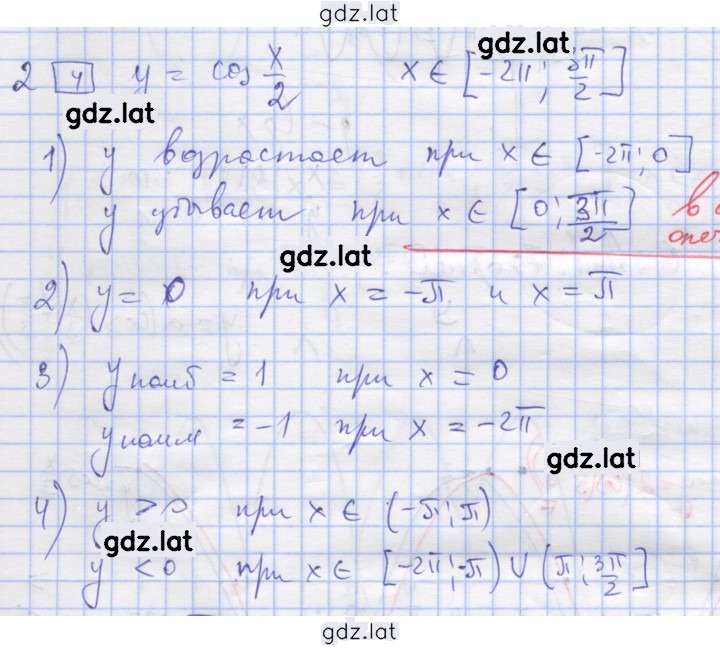 gdz.lat
2 4 y = cos x/2 x ∈ [-2π; 3π/2]
gdz.lat
gdz.lat
1) y возрастает при x ∈ [-2π; 0]
y убывает при x ∈ [0; 3π/2] в
gdz.lat
2) y = 0 при x = -π и x = π
3) y наиб = 1 при x = 0
y наим = -1 при x = -2π
4) y > 0 при x ∈ (-π; π)
gdz.lat
y < 0 при x ∈ [-2π; -π) ∪ (π; 3π/2]
gdz.lat